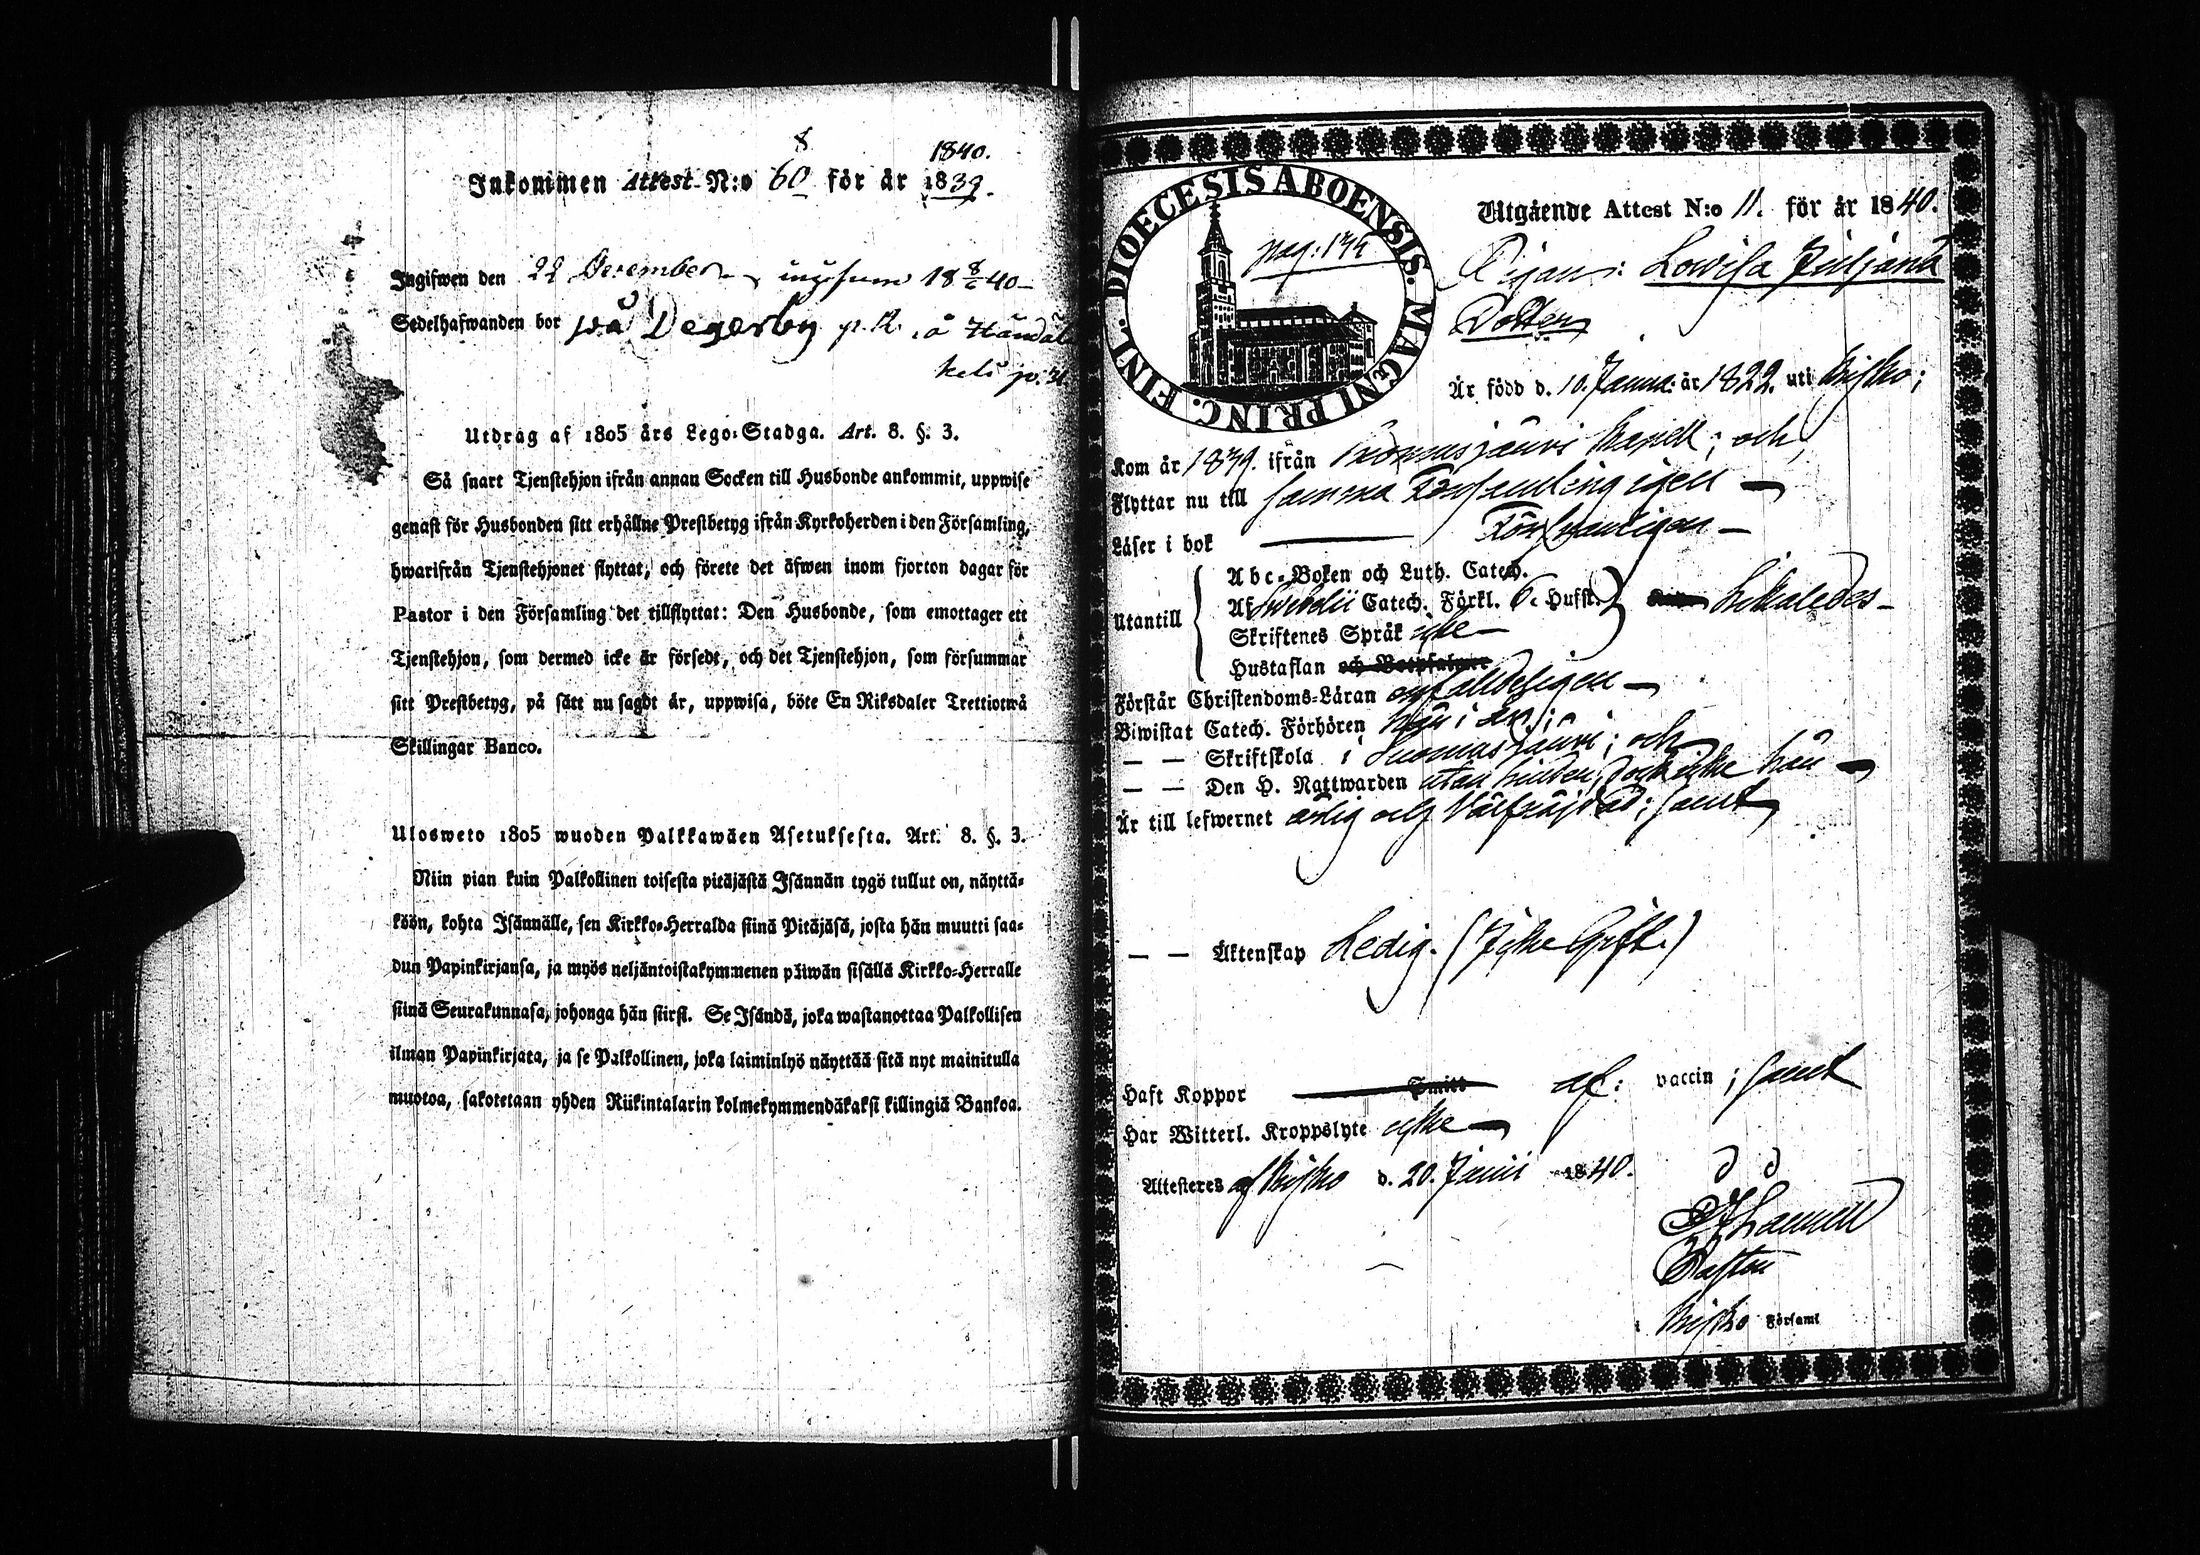 8
1840.
Inkommen Attest N:o 60 för år 1839.
Ingifwen den 22 December 18 8/6 40
Sedelhafwanden bor på Degerby p. 12. å
p. 31
Utdrag af 1805 års Lego-Stadga. Art. 8. §. 3.
Så snart Tjenstehjon ifrån annan Socken till Husbonde ankommit, uppwise
genast för Husbonden sitt erhållne Prestbetyg ifrån Kyrkoherden i den Församling,
hwarifrån Tjenstehjonet flyttat, och förete det äfwen inom fjorton dagar för
Pastor i den Församling det tillflyttat: Den Husbonde, som emottager ett
Tjenstehjon, som dermed icke är försedt, och det Tjenstehjon, som försummar
sitt Prestbetyg, på sätt nu sagdt är, uppwisa, böte En Riksdaler Trettiotwå
Skillingar Banco.
Ulosweto 1805 wuoden Palkkawäen Asetuksesta. Art. 8. §. 3.
Niin pian kuin Palkollinen toisesta pitäjästä Isännän tygö tullut on, näyttä-
köön, kohta Isännälle, sen Kirkko-Herralda siinä Pitäjäsä, josta hän muutti saa-
dun Papinkirjansa, ja myös neljäntoistakymmenen päiwän sisällä Kirkko-Herralle
siinä Seurakunnasa, johonga hän siirst. Se Isändä, joka wastanottaa Palkollisen
ilman Papinkirjata, ja se Palkollinen, joka laiminlyö näyttää sitä nyt mainitulla
muotoa, sakotetaan yhden Riikintalarin kolmekymmendäkaksi killingiä Bankoa.
DIOECESIS ABOENSIS. MAGNI PRINC. FINL.
pag: 174
Utgående Attest N:o 11. för år 1840.
Pigan: Lowisa Juljana
Dotter
Är född d. 10. Janua: år 1822. uti Kisko;
Kom år 1839. ifrån Suomusjärvi Kapell; och
Flyttar nu till samma Församling igen
Läser i bok Försvarligen
Utantill
Abc-Boken och Luth. Catech.
Af Swebelii Catech. Förkl. 6. Hufst. Likaledes
Skriftenes Språk icke
Hustaflan och Botpsalmer
Förstår Christendoms-Läran enfaldeligen
Biwistat Catech. Förhören
— — Skriftskola i Suomusjärvi; och
— — Den H. Nattwarden utan hinder, dock icke här
Är till lefwernet ärlig och Välfräjdad; samt
— — Äktenskap Ledig. (Icke Gift.)
Haft Koppor Smitt af: vaccin; samt
Har Witterl. Kroppslyte icke
Attesteres af Kisko d. 20. Junii 1840.
Pastor
i Kisko Församl